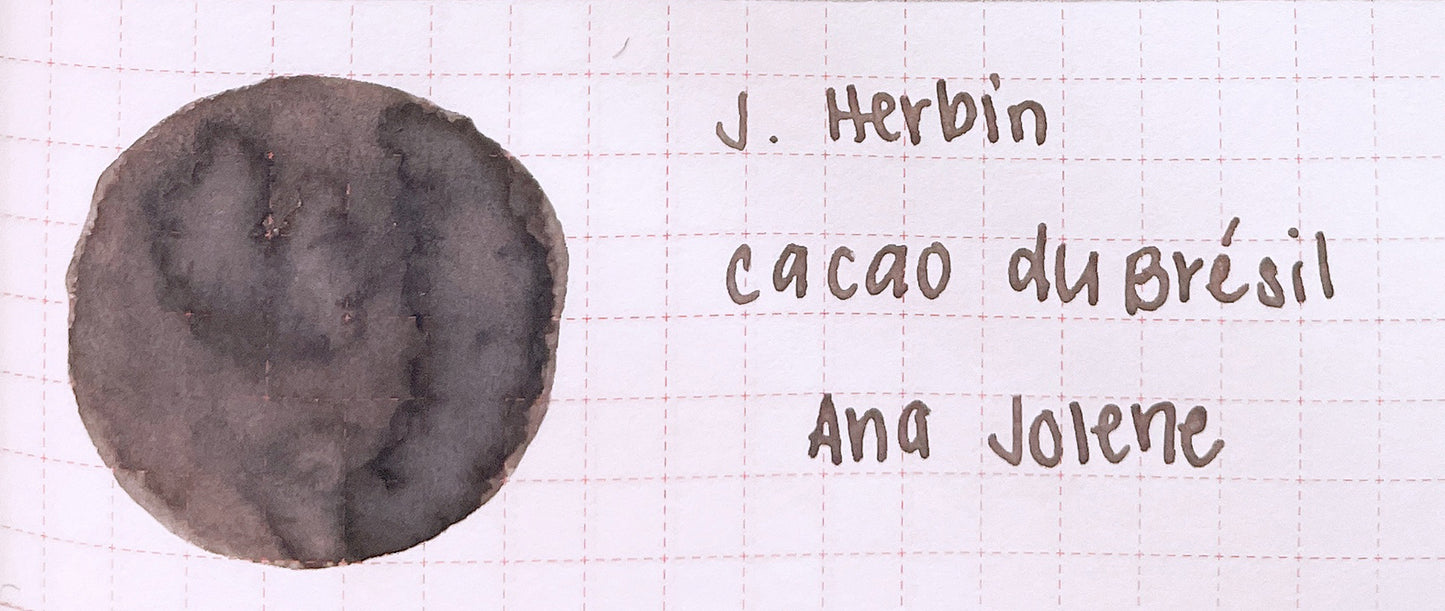 J. Herbin
cacao du Brésil
Ana Jolene